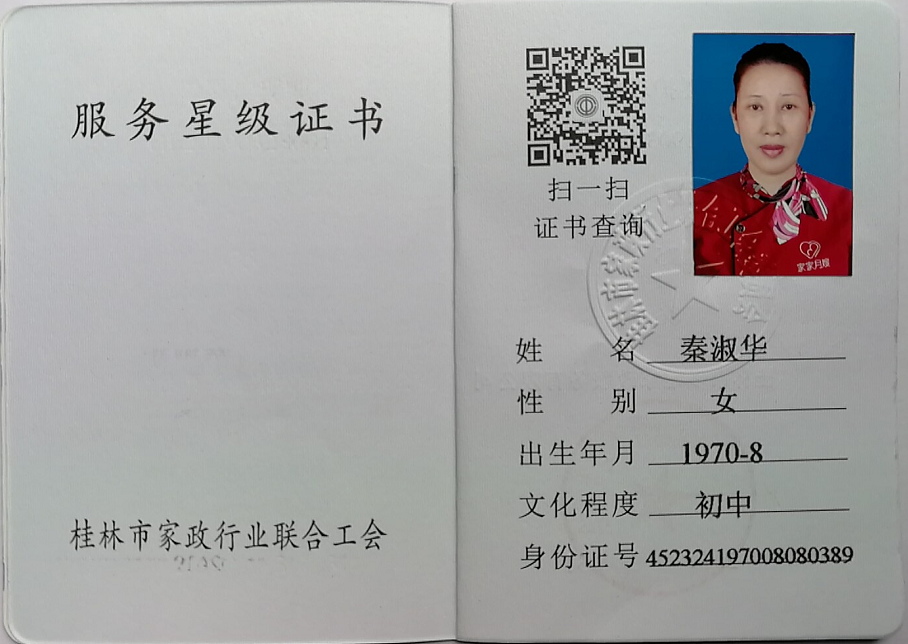 服务星级证书
桂林市家政行业联合工会
扫一扫
证书查询
家家月嫂
姓名 秦淑华
性别 女
出生年月 1970-8
文化程度 初中
身份证号 452324197008080389